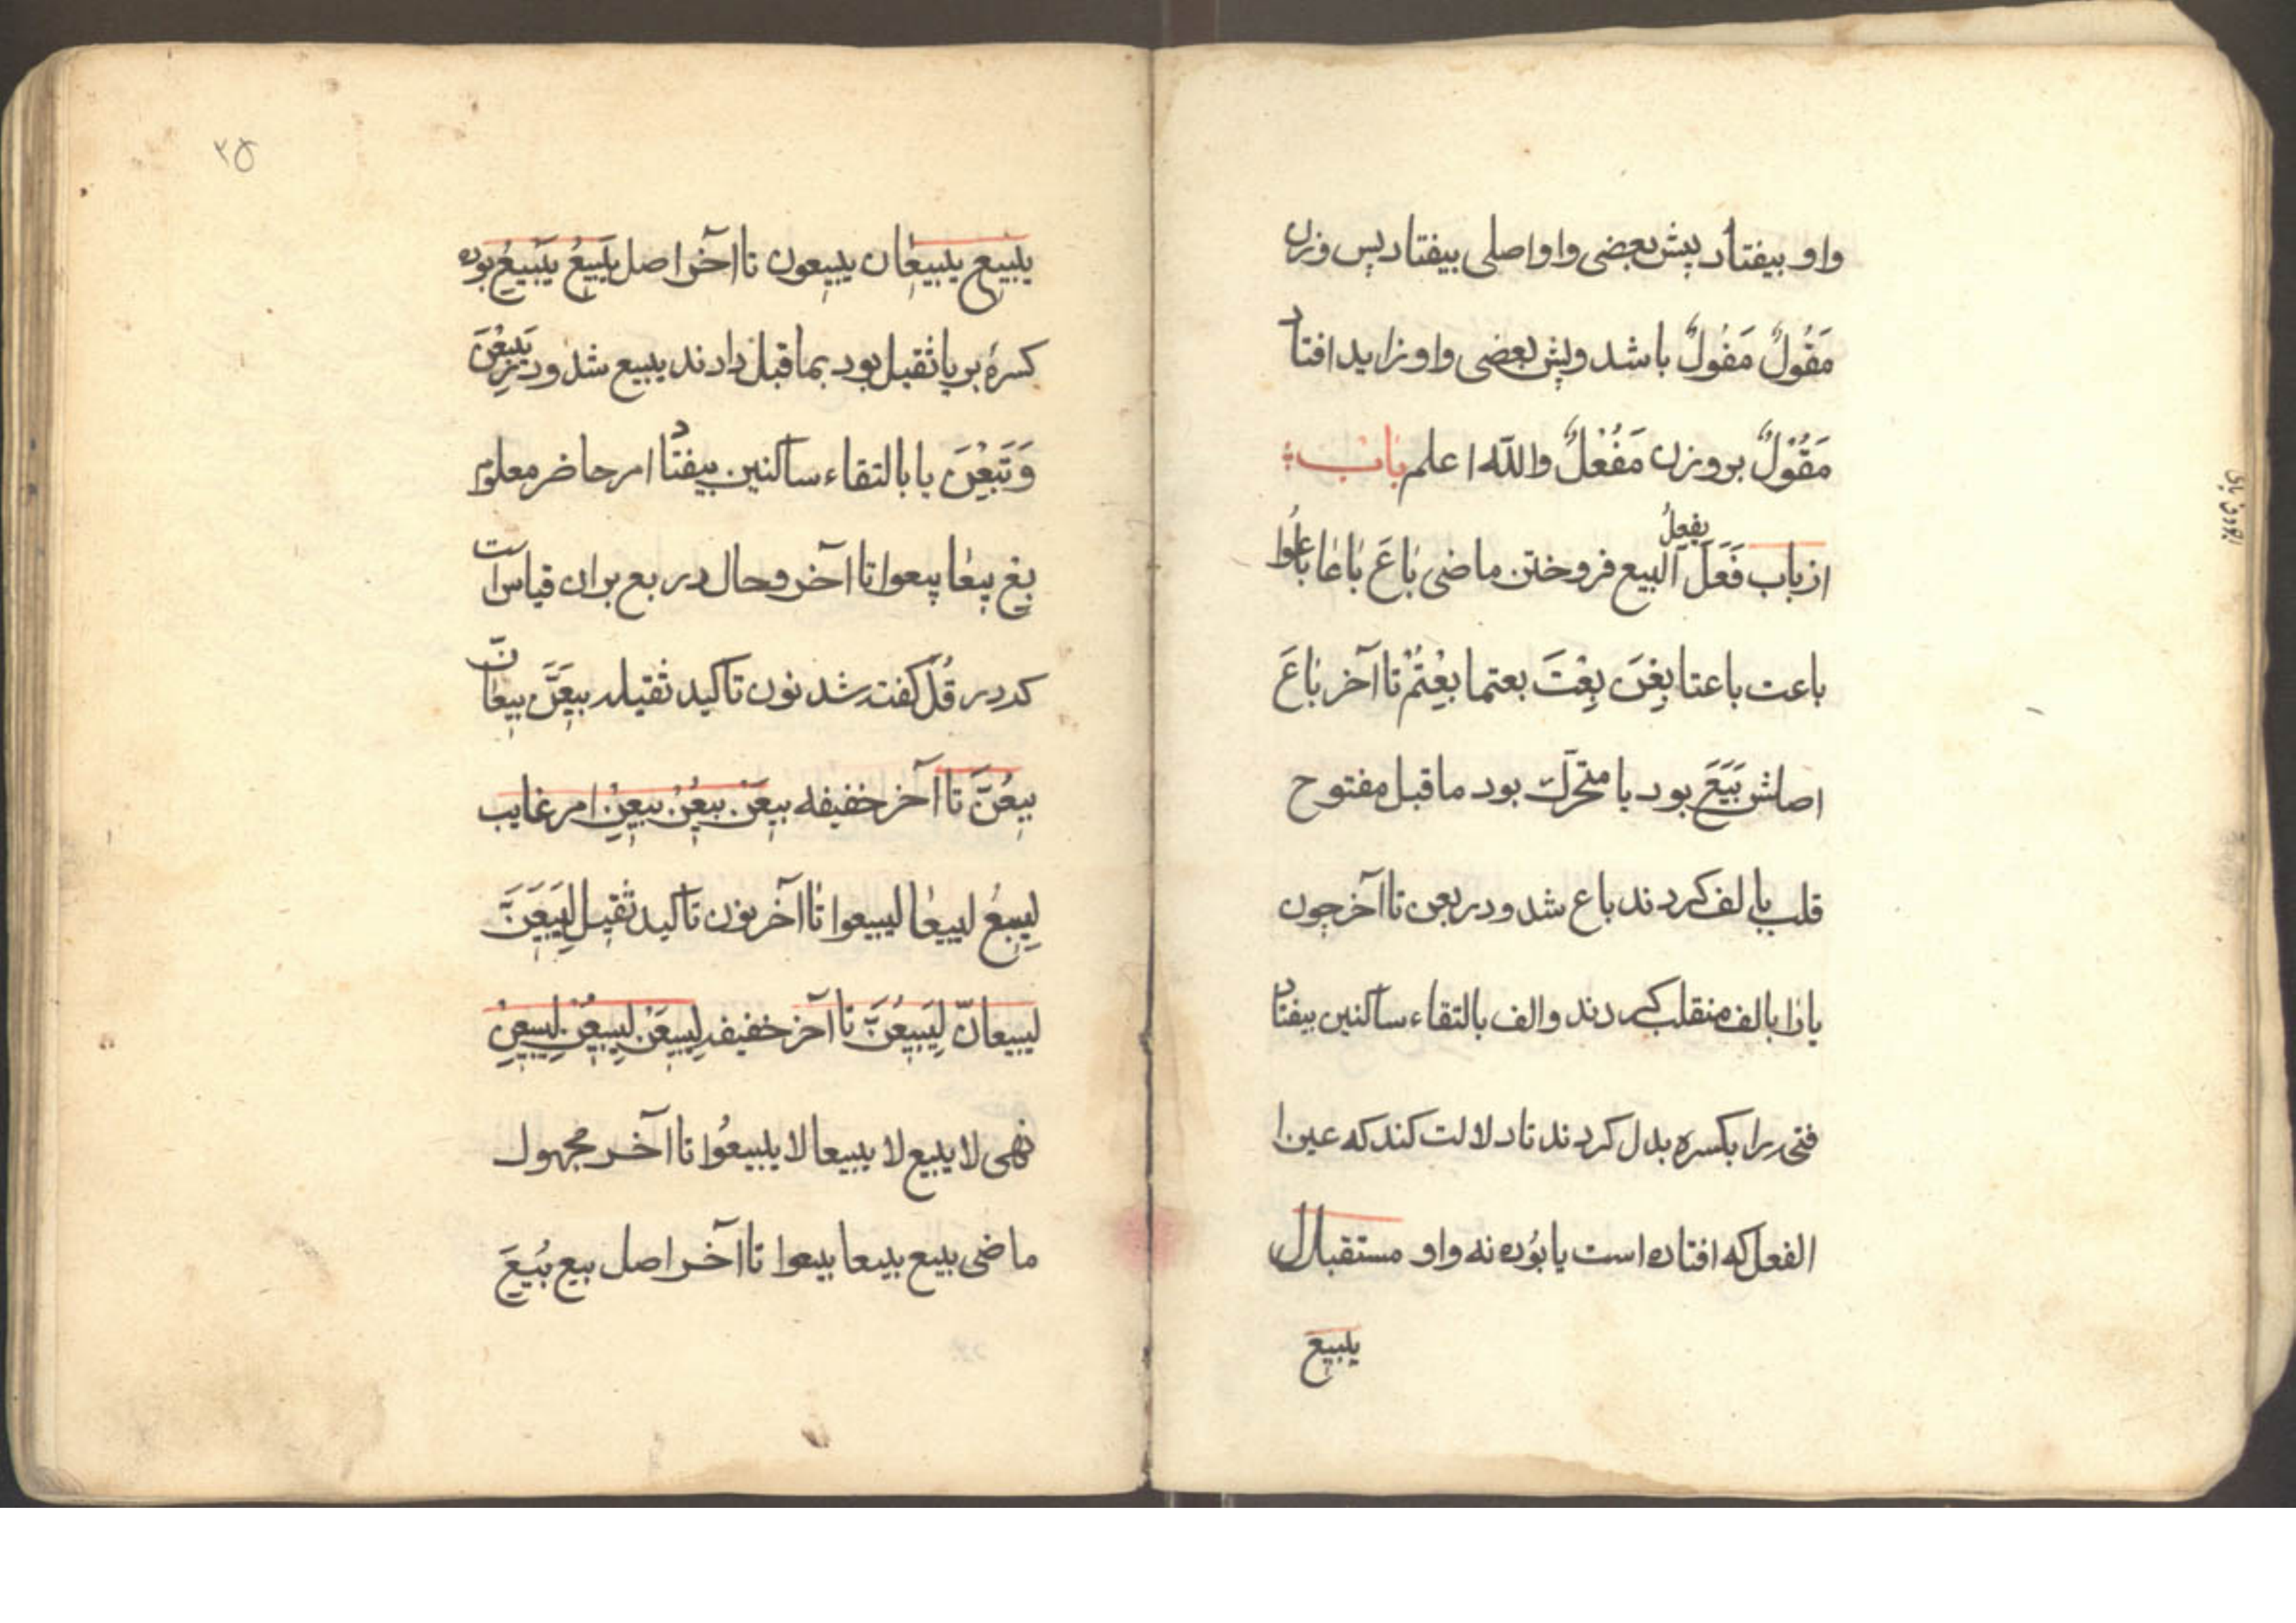 واو بیفتاد پیش بعضی واو اصلی بیفتاد پس وزن
مَقُولٌ مَفُولٌ باشد و پیش بعضی واو زاید افتاد
مَقُوْلٌ بر وزن مَفُعْلٌ والله اعلم باب
از باب فَعَلَ یفعِلُ البیع فروختن ماضی بَاعَ بَاعَا بَاعُوا
باعت باعتا بِعْنَ بِعْتَ بعتما بِعْتُمْ تا آخر بَاعَ
اصلش بَیَعَ بود یا متحرّک بود ماقبل مفتوح
قلب بالف کردند باع شد و در بعن تا آخر چون
یا را بالف منقلب کردند والف بالتقاء ساکنین بیفتاد
فتحه را بکسره بدل کردند تا دلالت کند که عین ا
الفعل که افتاده است یا بُوده نه واو مستقبل
یبیع
۲۵
یبیع یبیعان یبیعون تا آخر اصل یَبِیعُ یَبْیِعُ بوده
کسرهٔ بر یا ثقیل بود بماقبل دادند یبیع شد و در یَبِعْنَ
وَتَبِعْنَ یا بالتقاء ساکنین بیفتاد امر حاضر معلوم
بِعْ بِیعَا بیعوا تا آخر و حال در بع بران قیاس است
که در قُلْ گفته شد نون تاکید ثقیله بیعَنَّ بیعانّ
بیعُنَّ تا آخر خفیفه بیعَنْ بیعُنْ بیعِنْ امر غایب
لِیَبِعْ لیبیعا لیبیعوا تا آخر نون تاکید ثقیل لِیَبِیعَنَّ
لیبیعانّ لِیَبِیعُنَّ تا آخر خفیفه لِیَبِیعَنْ لِیَبِیعُنْ لِیَبِیعِنْ
نهی لا یبیع لا یبیعا لا یبیعُوا تا آخر مجهول
ماضی بیع بیعا بیعوا تا آخر اصل بیع بُیِعَ